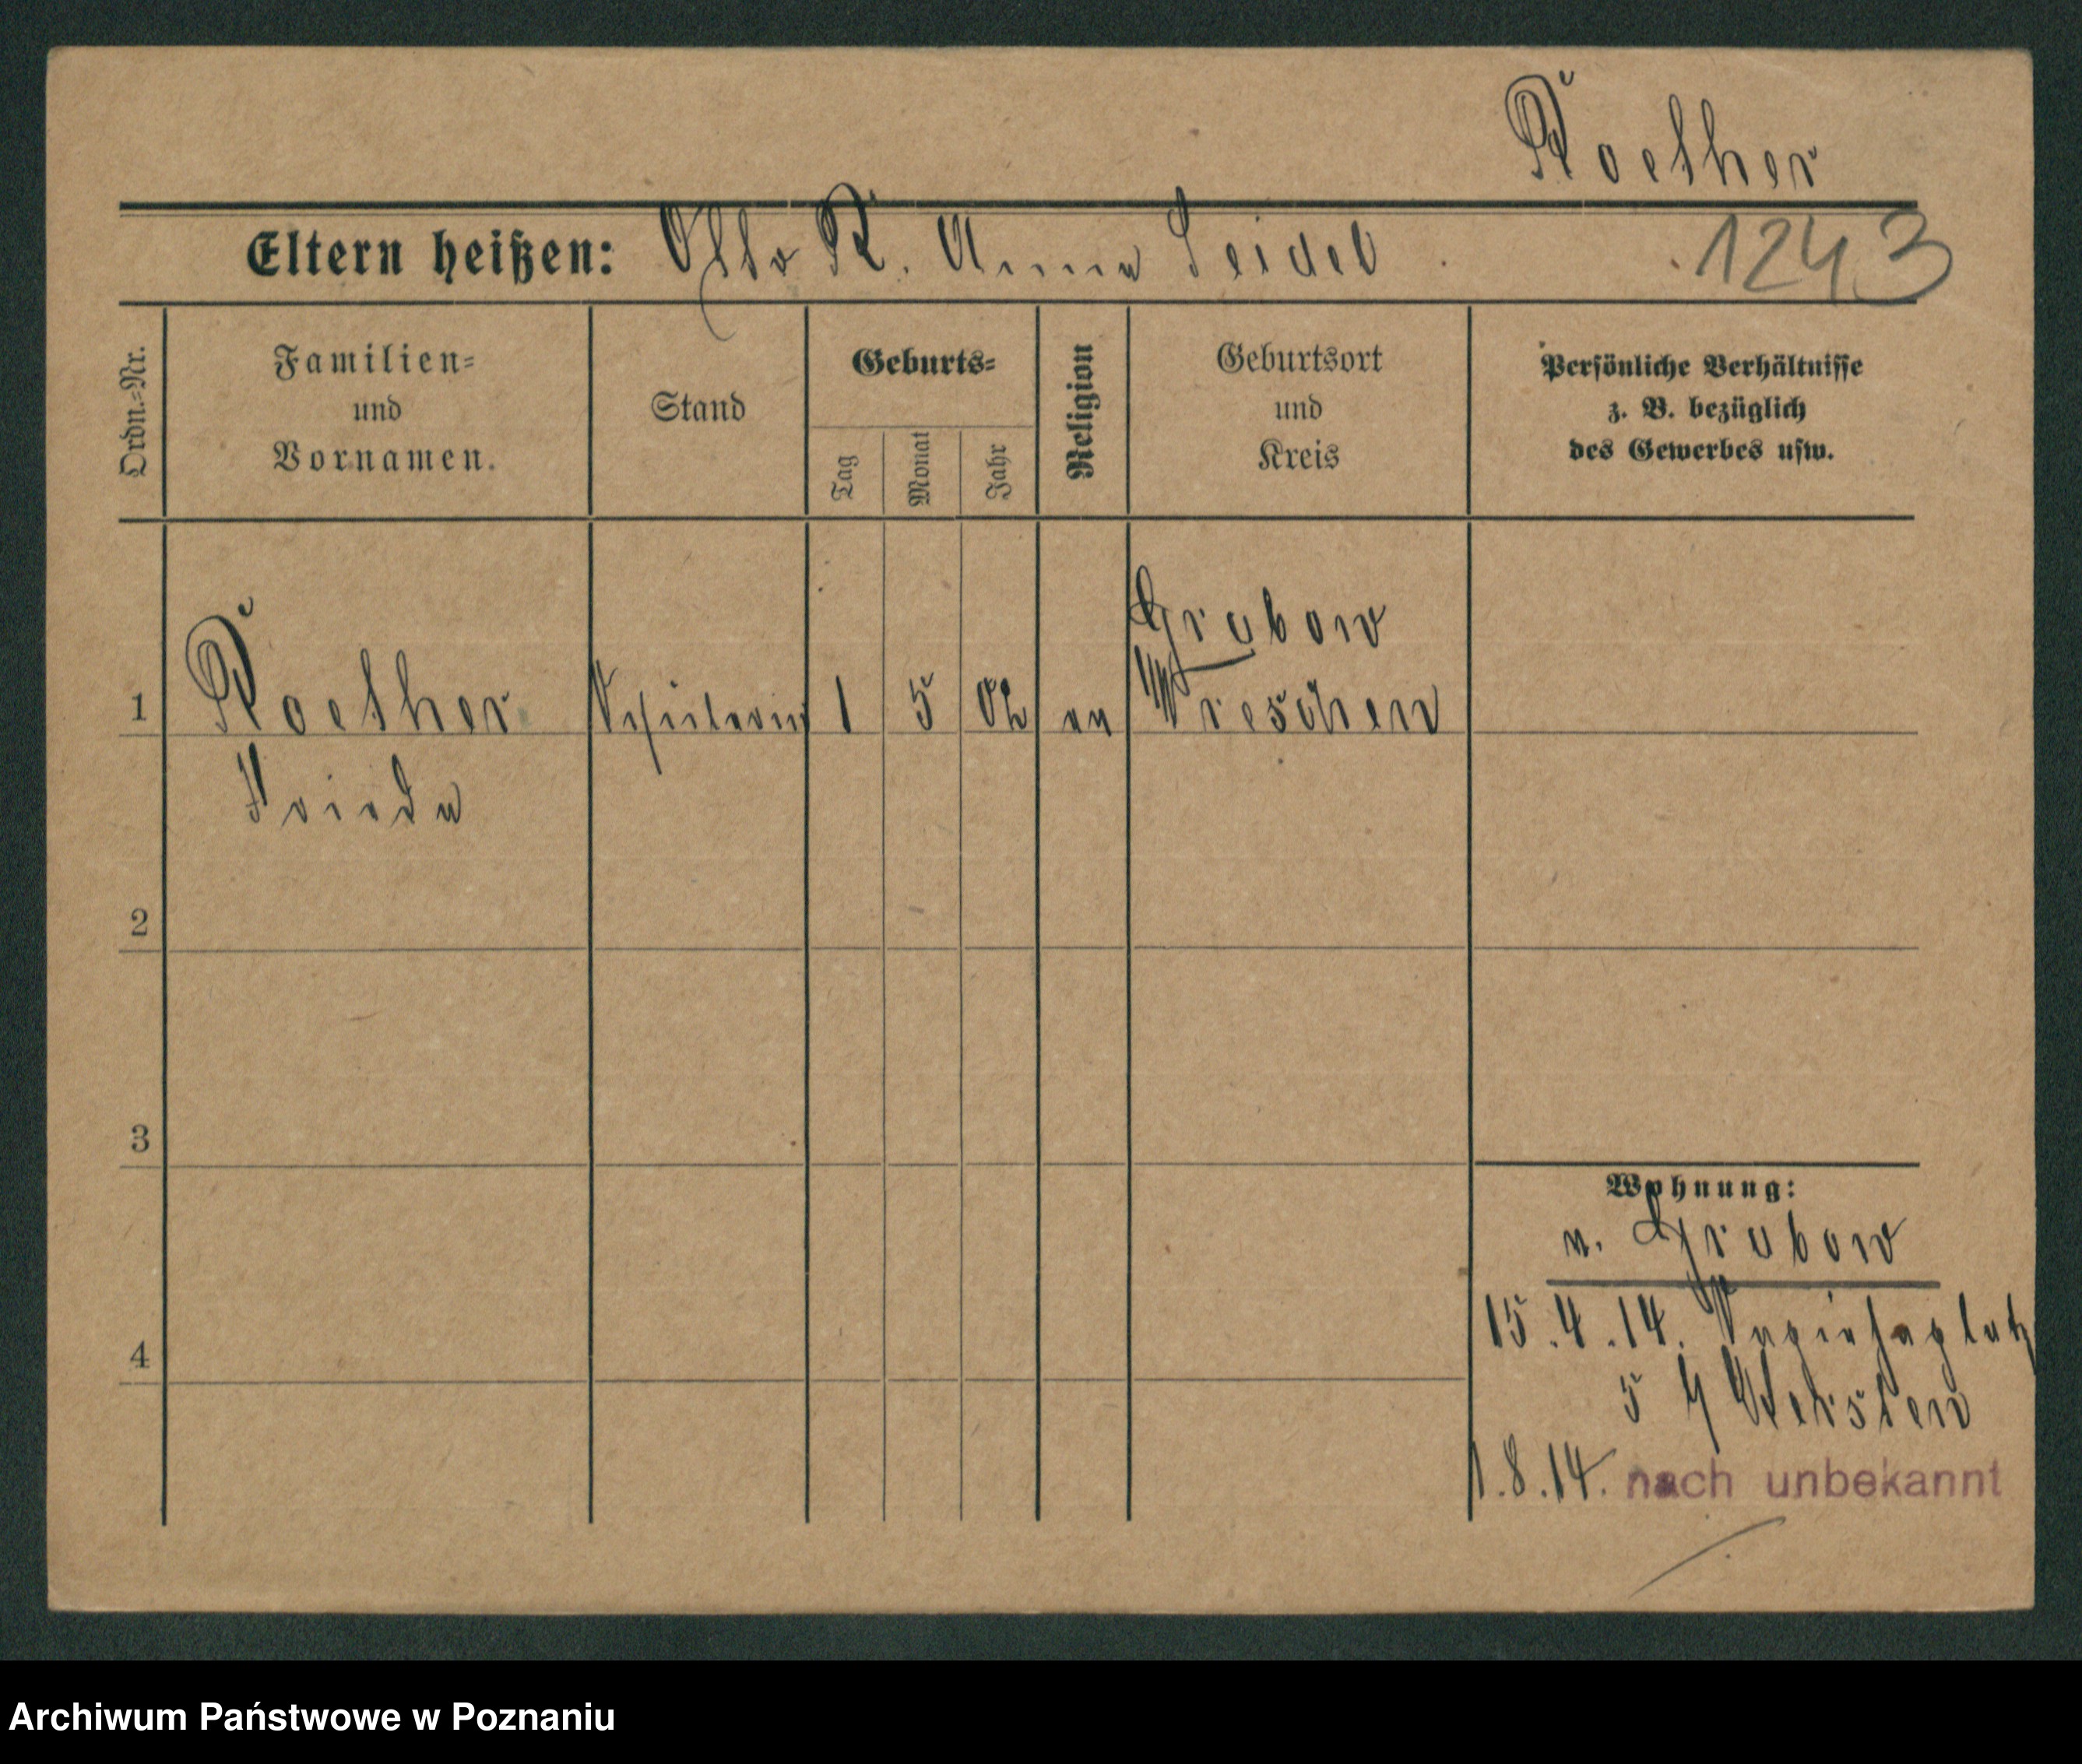 Roether
Eltern heißen: Otto R. Anna Seidel
1243
Ordn.-Nr.
Familien=
und
Vornamen.
Stand
Geburts=
Tag
Monat
Jahr
Religion
Geburtsort
und
Kreis
Persönliche Verhältnisse
z. B. bezüglich
des Gewerbes usw.
Grabow
1 Roether Schülerin 1 5 02 ev Wreschen
Frieda
2
3
4
Wohnung:
v. Grabow
15.4.14.
5
1.8.14. nach unbekannt
Archiwum Państwowe w Poznaniu